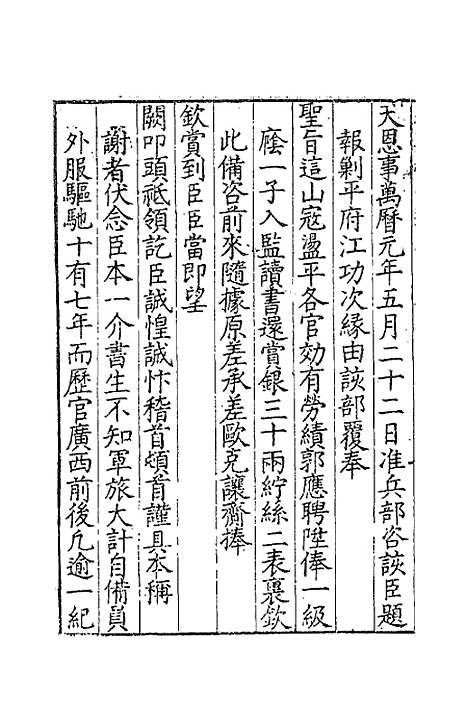 天恩事萬曆元年五月二十二日准兵部咨該臣題
報剿平府江功次緣由該部覆奉
聖旨這山寇盪平各官効有勞績郭應聘陞俸一級
廕一子入監讀書還賞銀三十兩紵絲二表裏欽
此備咨前來隨據原差承差歐克讓齎捧
欽賞到臣臣當即望
闕叩頭祗領訖臣誠惶誠忭稽首頓首謹具本稱
謝者伏念臣本一介書生不知軍旅大計自備員
外服驅馳十有七年而歷官廣西前後凡逾一紀